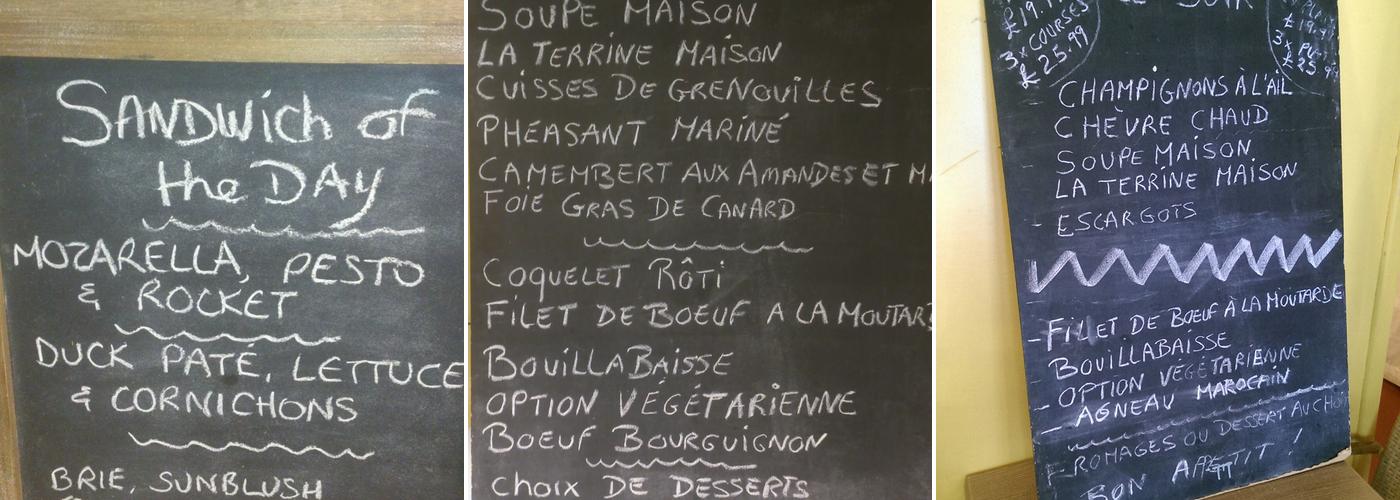 SANDWich of
the DAy
MOZARELLA, PESTO
& ROCKET
DUCK PATÉ, LETTUCE
& CORNICHONS
BRIE, SUNBLUSH
SOUPE MAISON
LA TERRINE MAISON
CUISSES DE GRENOUILLES
PHEASANT MARINÉ
CAMEMBERT AUX AMANDES ET
FOIE GRAS DE CANARD
COQUELET RÔTI
FILET DE BOEUF A LA MOUTARD
BOUILLABAISSE
OPTION VÉGÉTARIENNE
BOEUF BOURGUIGNON
CHOIX DE DESSERTS
3 x COURSES
£ 25.99
SOIR
CHAMPIGNONS À L'AIL
CHÈVRE CHAUD
SOUPE MAISON
LA TERRINE MAISON
- ESCARGOTS
- FILET DE BOEUF À LA MOUTARDE
BOUILLABAISSE
- OPTION VEGETARIENNE
- AGNEAU MAROCAIN
FROMAGES OU DESSERT AU CHOI
BON APPETIT !